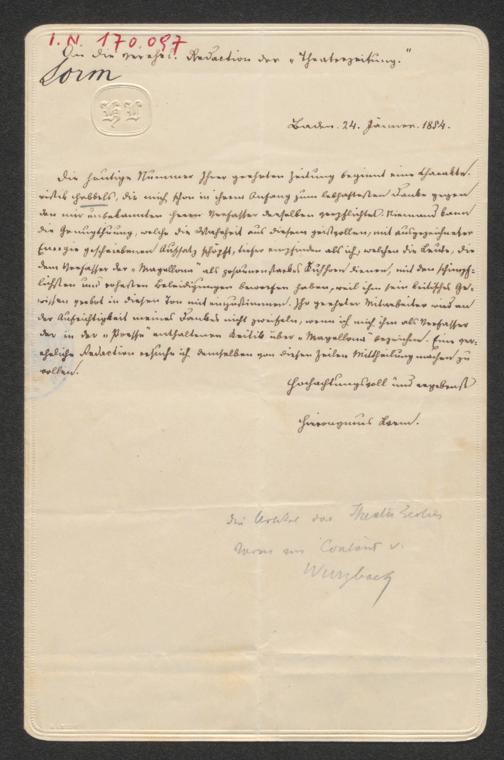 I. N. 170.097
An die verehrl. Redaction der „Theaterzeitung."
Lorm
Baden. 24. Jänner. 1854.
Die heutige Nummer Ihrer geehrten Zeitung beginnt eine Charakte-
ristik Hebbels, die mich schon in ihrem Anfang zum lebhaftesten Danke gegen
den mir unbekannten Herrn Verfasser derselben verpflichtet. Niemand kann
die Genugthuung, welche die Wahrheit aus diesem geistvollen, mit ausgezeichneter
Energie geschriebenen Aufsatz schöpft, tiefer empfinden als ich, welchen die Leute, die
dem Verfasser der „Magellona" als zu dienen, mit den schimpf-
lichsten und rohesten Beleidigungen beworfen haben, weil ihm sein kritisches Ge-
wissen verbot in diesen Ton mit einzustimmen. Ihr geehrter Mitarbeiter wird an
der Aufrichtigkeit meines Dankes nicht zweifeln, wenn ich mich ihm als Verfasser
der in der „Presse" enthaltenen Kritik über „Magellona" bezeichne. Eine ver-
ehrliche Redaction ersuche ich demselben von diesen Zeilen Mittheilung machen zu
wollen.
Hochachtungsvoll und ergebenst
Hieronymus Lorm.
Die Artikel der
waren von Constant v.
Wurzbach